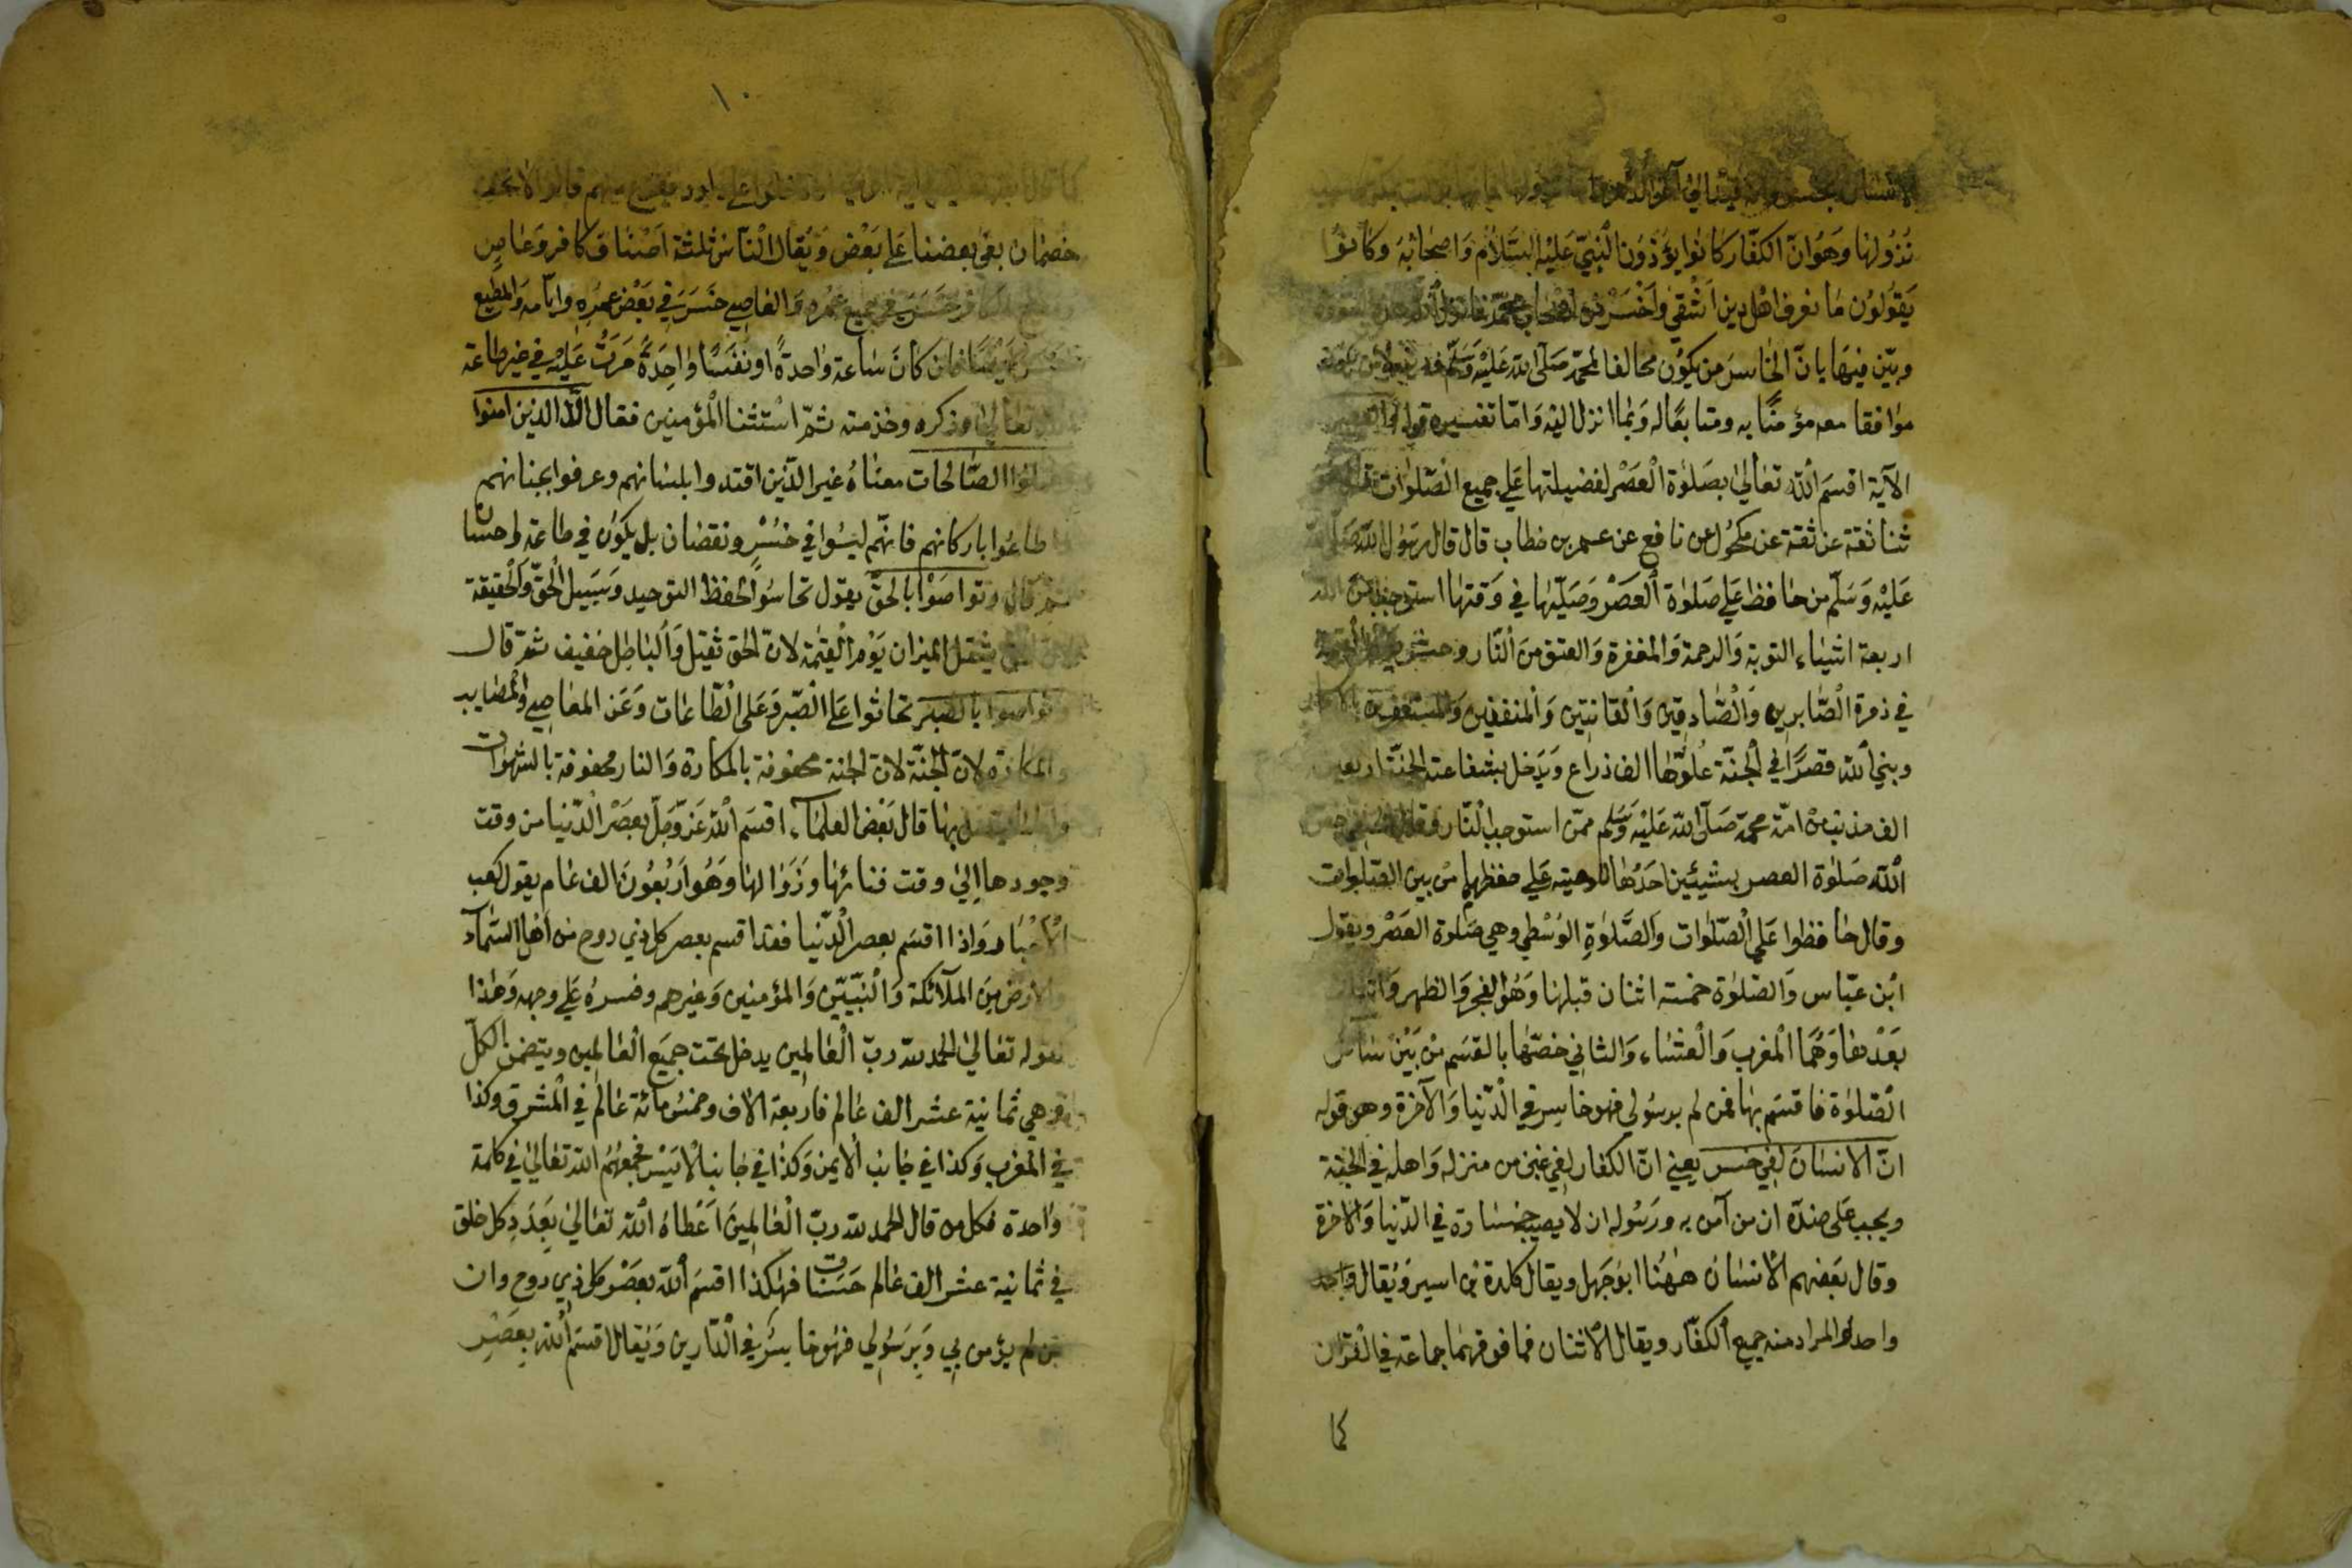 نزولها وهو انّ الكفّار كانوا يؤذون النّبيّ عليه السّلام واصحابه وكانوا
يقولون ما نعرف اهل دين اشقي واخسر من اصحاب محمّد فانزل
وبيّن فيها بانّ الخاسر من يكون مخالفا لمحمّد صلّى الله عليه وسلّم
موافقا معه مؤمنًا به ومتابعًا له وبما انزل اليه وامّا تفسيره قوله والعصر
الآية اقسم الله تعالى بصلوة العصر لفضيلتها علي جميع الصّلوات
ثنا ثقة عن ثقة عن مكحول عن نافع عن عمر بن خطاب قال قال رسول الله صلّى الله
عليه وسلّم من حافظ علي صلوة العصر وصلّيها في وقتها استوجب من الله
اربعة اشياء التوبة والرحمة والمغفرة والعتق من النّار وحشر يوم القيمة
في زمرة الصّابرين والصّادقين والقانتين والمنفقين والمستغفرين بالاسحار
وبني الله قصرًا في الجنّة علوّها الف ذراع ويدخل بشفاعته الجنّة اربعين
الف مذنب من امّة محمّد صلّى الله عليه وسلّم ممّن استوجب النّار
الله صلوة العصر بشيئين احدهما علي حفظها من بين الصّلوات
وقال حافظوا علي الصّلوات والصّلوة الوسطي وهي صلوة العصر ويقول
ابن عبّاس والصّلوة خمسة اثنان قبلها وهو الفجر والظهر واثنان
بعدها وهما المغرب والعشاء والثاني خصّها بالقسم من بين سائر
الصّلوة فاقسم بها فمن لم برسولي فهو خاسر في الدّنيا والآخرة وهو قوله
انّ الانسان لفي خسر يعني انّ الكفار لفي غبن من منزله واهله في الجنّة
ويجب علي ضدّه ان من آمن به ورسوله ان لا يصيب خسارة في الدّنيا والاخرة
وقال بعضهم الانسان ههنا ابو جهل ويقال كلدة بن اسير ويقال واحد
واحد المراد منه جميع الكفّار ويقال الاثنان فما فوقهما جماعة في القران
كما
١٠
خصمان بغى بعضنا علي بعض ويقال النّاس ثلثة اصناف كافر وعاص
الكافر خسر في جميع عمره والعاصي خسر في بعض عمره وايّامه والمطيع
فان كان ساعة واحدة او نفسًا واحدة مرّت عليه في غير طاعة
تعالى وذكره وخدمته ثمّ استثنا المؤمنين فقال الّا الذين آمنوا
وعملوا الصّالحات معناه غير الّذين اقتدوا بلسانهم وعرفوا بجنانهم
واطاعوا باركانهم فانّهم ليسوا في خسر ونقصان بل يكون في طاعة واحسان
ثمّ قال وتواصوا بالحقّ يقول تحاسوا لحفظ التوحيد وسبيل الحقّ والحقيقة
يثقل الميزان يوم القيمة لانّ الحق ثقيل والباطل خفيف ثمّ قال
وتواصوا بالصبر تحاثوا علي الصّبر وعلى الطّاعات وعن المعاصي والمصايب
والمكاره لانّ الجنّة لانّ الجنة محفوفة بالمكاره والنار محفوفة بالشهوات
بها قال بعض العلماء اقسم الله عزّ وجلّ بعصر الدّنيا من وقت
وجودها الى وقت فنائها وزوالها وهو اربعون الف عام يقول كعب
الاحبار واذا اقسم بعصر الدّنيا فقد اقسم بعصر كل ذي روح من اهل السّماء
والارض من الملآئكة والنّبيّين والمؤمنين وغيرهم وفسره علي وجهه وهذا
لقوله تعالى الحمد لله ربّ العالمين يدخل تحت جميع العالمين ويتضمن الكلّ
وهي ثمانية عشر الف عالم فاربعة الاف وخمس مائة عالم في المشرق وكذا
في المغرب وكذا في جانب الايمن وكذا في جانب الايسر فجمعهم الله تعالى في كلمة
واحدة فكل من قال الحمد لله ربّ العالمين اعطاه الله تعالى بعدد كل خلق
في ثمانية عشر الف عالم حسنات فهكذا اقسم الله بعصر كل ذي روح وان
من لم يؤمن بي وبرسولي فهو خاسر في الدّارين ويقال اقسم الله بعصر